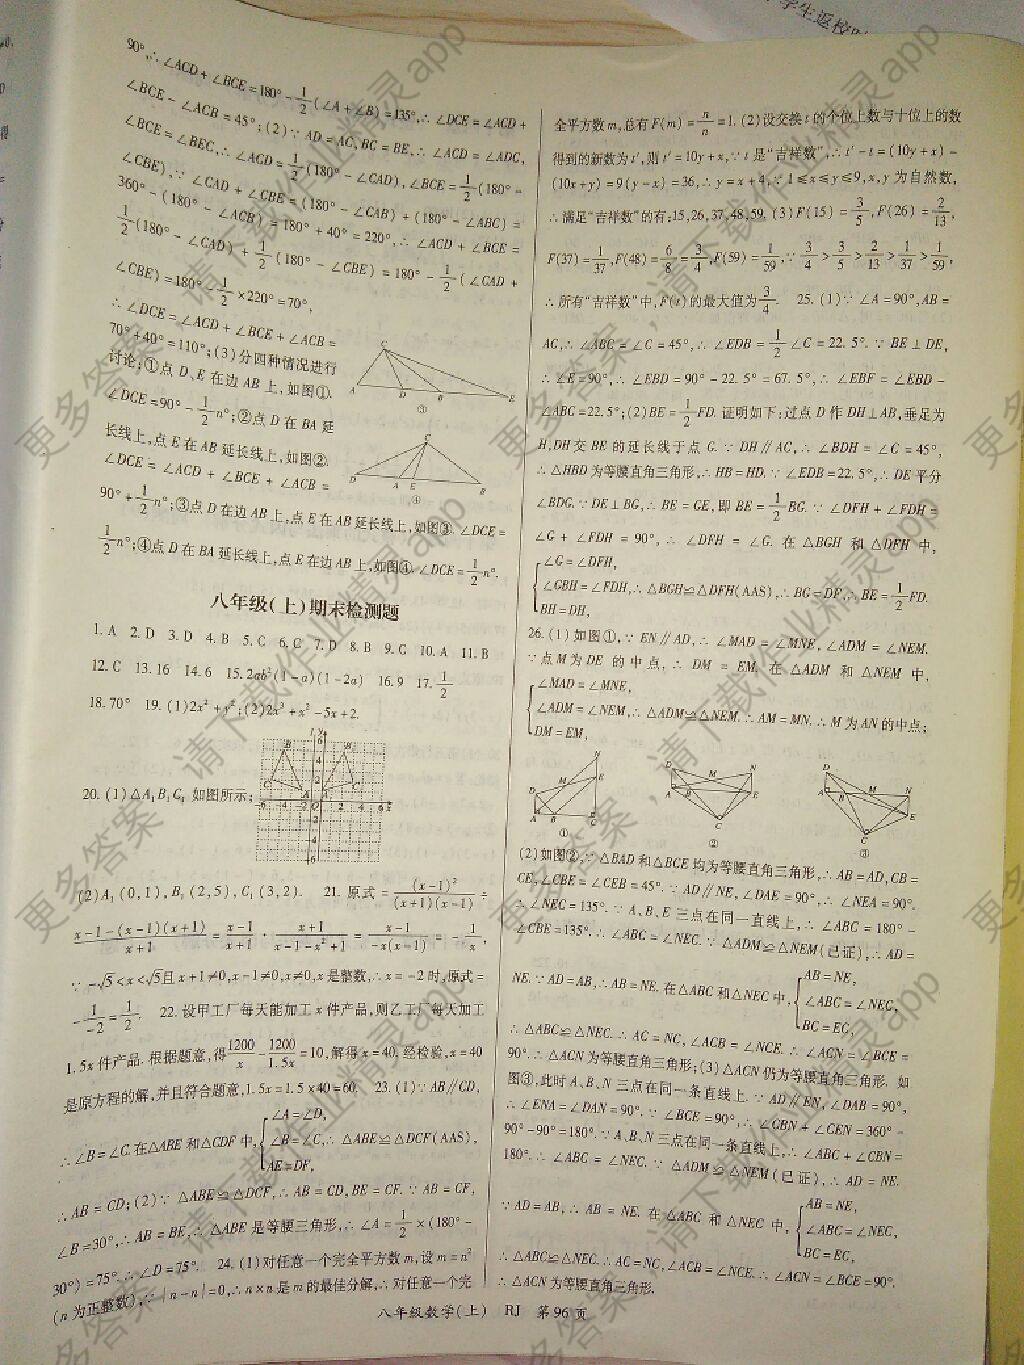 学生返校
90°,∴∠ACD+∠BCE=180°-1/2(∠A+∠B)=135°,∴∠DCE=∠ACD+
∠BCE-∠ACB=45°;(2)∵AD=AC,BC=BE,∴∠ACD=∠ADC,
∠BCE=∠BEC,∴∠ACD=1/2(180°-∠CAD),∠BCE=1/2(180°-
∠CBE),∵∠CAD+∠CBE=(180°-∠CAB)+(180°-∠ABC)=
360°-(180°-∠ACB)=180°+40°=220°,∴∠ACD+∠BCE=
1/2(180°-∠CAD)+1/2(180°-∠CBE)=180°-1/2(∠CAD+
∠CBE)=180°-1/2×220°=70°,
∴∠DCE=∠ACD+∠BCE+∠ACB=
70°+40°=110°;(3)分四种情况进行
讨论:①点D、E在边AB上,如图①.
∠DCE=90°-1/2n°;②点D在BA延
长线上,点E在AB延长线上,如图②.
∠DCE=∠ACD+∠BCE+∠ACB=
90°+1/2n°;③点D在边AB上,点E在AB延长线上,如图③.∠DCE=
1/2n°;④点D在BA延长线上,点E在边AB上,如图④.∠DCE=1/2n°.
C
A D B E
③
C
D A E B
④
八年级(上)期末检测题
1.A 2.D 3.D 4.B 5.C 6.C 7.D 8.B 9.C 10.A 11.B
12.C 13.16 14.6 15.2ab²(1-a)(1-2a) 16.9 17.1/2
18.70° 19.(1)2x²+y²;(2)2x³+x²-5x+2.
20.(1)△A₁B₁C₁如图所示:
(2)A₁(0,1),B₁(2,5),C₁(3,2). 21.原式=(x-1)²/(x+1)(x-1)÷
x-1-(x-1)(x+1)/x+1=x-1/x+1·x+1/x-1-x²+1=x-1/-x(x-1)=-1/x,
∵-√5<x<√5且x+1≠0,x-1≠0,x≠0,x是整数,∴x=-2时,原式=
-1/-2=1/2. 22.设甲工厂每天能加工x件产品,则乙工厂每天加工
1.5x件产品.根据题意,得1200/x-1200/1.5x=10,解得x=40.经检验,x=40
是原方程的解,并且符合题意,1.5x=1.5×40=60. 23.(1)∵AB∥CD,
∴∠B=∠C.在△ABE和△CDF中,{∠A=∠D,
∠B=∠C,∴△ABE≌△DCF(AAS),
AE=DF,
∴AB=CD;(2)∵△ABE≌△DCF,∴AB=CD,BE=CF.∵AB=CF,
∠B=30°,∴AB=BE,∴△ABE是等腰三角形,∴∠A=1/2×(180°-
30°)=75°.∴∠D=75°. 24.(1)对任意一个完全平方数m,设m=n²
(n为正整数),∵|n-n|=0,∴n×n是m的最佳分解,∴对任意一个完
全平方数m,总有F(m)=n/n=1.(2)设交换t的个位上数与十位上的数
得到的新数为t′,则t′=10y+x,∵t是“吉祥数”,∴t′-t=(10y+x)-
(10x+y)=9(y-x)=36,∴y=x+4,∵1≤x≤y≤9,x,y为自然数,
∴满足“吉祥数”的有:15,26,37,48,59.(3)F(15)=3/5,F(26)=2/13,
F(37)=1/37,F(48)=6/8=3/4,F(59)=1/59,∵3/4>3/5>2/13>1/37>1/59,
∴所有“吉祥数”中,F(t)的最大值为3/4. 25.(1)∵∠A=90°,AB=
AC,∴∠ABC=∠C=45°,∴∠EDB=1/2∠C=22.5°.∵BE⊥DE,
∴∠E=90°,∴∠EBD=90°-22.5°=67.5°,∴∠EBF=∠EBD-
∠ABC=22.5°;(2)BE=1/2FD.证明如下:过点D作DH⊥AB,垂足为
H,DH交BE的延长线于点G.∵DH∥AC,∴∠BDH=∠C=45°,
∴△HBD为等腰直角三角形,∴HB=HD.∵∠EDB=22.5°,∴DE平分
∠BDG.∵DE⊥BG,∴BE=GE,即BE=1/2BG.∵∠DFH+∠FDH=
∠G+∠FDH=90°,∴∠DFH=∠G.在△BGH和△DFH中,
{∠G=∠DFH,
∠GBH=∠FDH,∴△BGH≌△DFH(AAS),∴BG=DF,∴BE=1/2FD.
BH=DH,
26.(1)如图①,∵EN∥AD,∴∠MAD=∠MNE,∠ADM=∠NEM.
∵点M为DE的中点,∴DM=EM.在△ADM和△NEM中,
{∠MAD=∠MNE,
∠ADM=∠NEM,∴△ADM≌△NEM.∴AM=MN.∴M为AN的中点;
DM=EM,
①
②
③
(2)如图②,∵△BAD和△BCE均为等腰直角三角形,∴AB=AD,CB=
CE,∠CBE=∠CEB=45°.∵AD∥NE,∠DAE=90°,∴∠NEA=90°.
∴∠NEC=135°.∵A、B、E三点在同一直线上,∴∠ABC=180°-
∠CBE=135°.∴∠ABC=∠NEC.∵△ADM≌△NEM(已证),∴AD=
NE.∵AD=AB,∴AB=NE.在△ABC和△NEC中,{AB=NE,
∠ABC=∠NEC,
BC=EC,
∴△ABC≌△NEC.∴AC=NC,∠ACB=∠NCE.∴∠ACN=∠BCE=
90°.∴△ACN为等腰直角三角形;(3)△ACN仍为等腰直角三角形.如
图③,此时A、B、N三点在同一条直线上.∵AD∥EN,∠DAB=90°,
∴∠ENA=∠DAN=90°.∵∠BCE=90°,∴∠CBN+∠CEN=360°-
90°-90°=180°.∵A、B、N三点在同一直线上,∴∠ABC+∠CBN=
180°.∴∠ABC=∠NEC.∵△ADM≌△NEM(已证),∴AD=NE.
∵AD=AB,∴AB=NE.在△ABC和△NEC中,{AB=NE,
∠ABC=∠NEC,
BC=EC,
∴△ABC≌△NEC.∴AC=NC,∠ACB=∠NCE.∴∠ACN=∠BCE=90°.
∴△ACN为等腰直角三角形.
八年级数学(上) RJ 第96页
更多答案,请下载作业精灵app